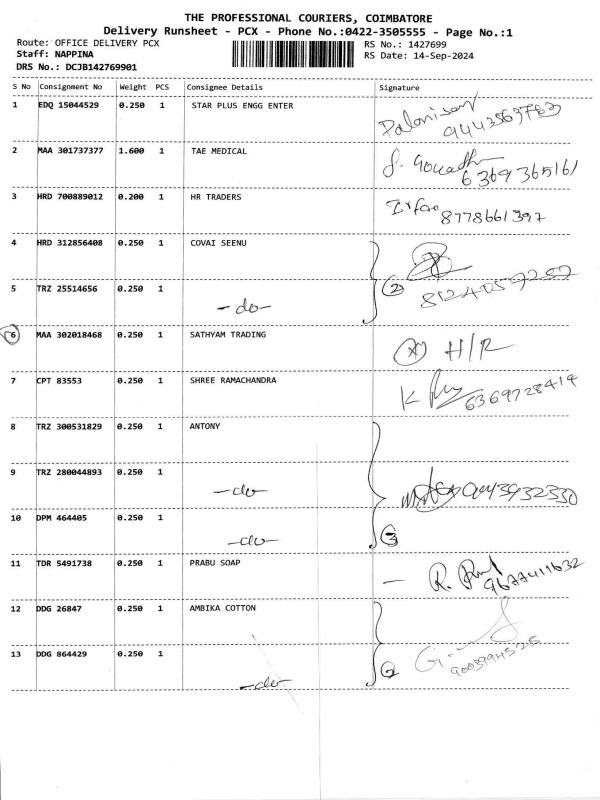 THE PROFESSIONAL COURIERS, COIMBATORE
Delivery Runsheet - PCX - Phone No.:0422-3505555 - Page No.:1
Route: OFFICE DELIVERY PCX
RS No.: 1427699
Staff: NAPPINA
RS Date: 14-Sep-2024
DRS No.: DCJB142769901
S No Consignment No Weight PCS Consignee Details Signature
1 EDQ 15044529 0.250 1 STAR PLUS ENGG ENTER
9443563763
2 MAA 301737377 1.600 1 TAE MEDICAL
6369365161
3 HRD 700889012 0.200 1 HR TRADERS Irfan
8778661397
4 HRD 312856408 0.250 1 COVAI SEENU
5 TRZ 25514656 0.250 1 -do- 2
6 MAA 302018468 0.250 1 SATHYAM TRADING X H/R
7 CPT 83553 0.250 1 SHREE RAMACHANDRA K
6369728414
8 TRZ 300531829 0.250 1 ANTONY
9 TRZ 280044893 0.250 1 -do- 9043932330
10 DPM 464405 0.250 1 -do- 3
11 TDR 5491738 0.250 1 PRABU SOAP - R.
9677411632
12 DDG 26847 0.250 1 AMBIKA COTTON
13 DDG 864429 0.250 1 -do- 2 G.